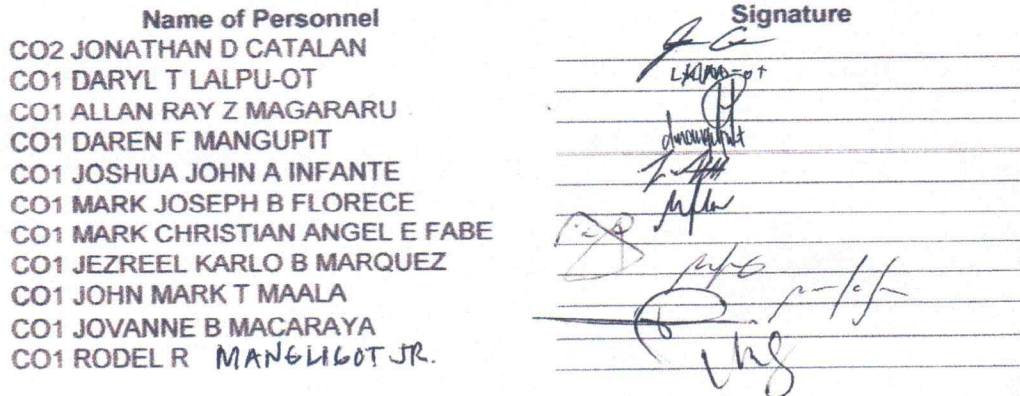 Name of Personnel Signature
CO2 JONATHAN D CATALAN
CO1 DARYL T LALPU-OT
CO1 ALLAN RAY Z MAGARARU
CO1 DAREN F MANGUPIT
CO1 JOSHUA JOHN A INFANTE
CO1 MARK JOSEPH B FLORECE
CO1 MARK CHRISTIAN ANGEL E FABE
CO1 JEZREEL KARLO B MARQUEZ
CO1 JOHN MARK T MAALA
CO1 JOVANNE B MACARAYA
CO1 RODEL R MANGLIGOT JR.